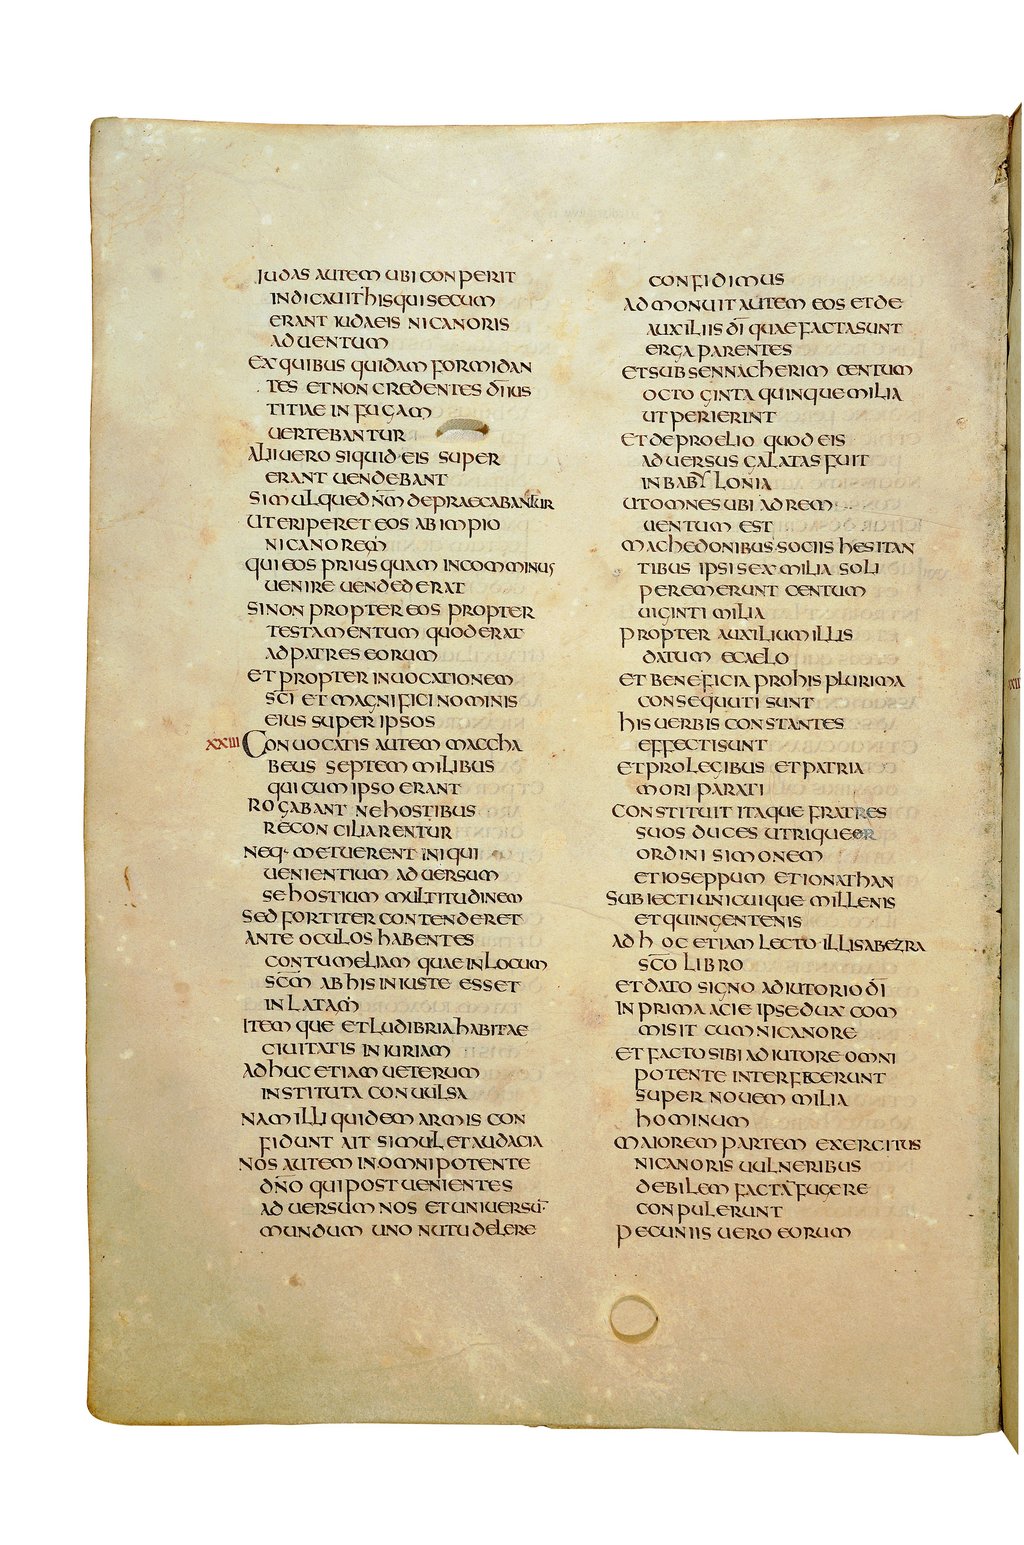 IUDAS AUTEM UBI CONPERIT
INDICAUIT HIS QUI SECUM
ERANT IUDAEIS NICANORIS
ADUENTUM
EX QUIBUS QUIDAM FORMIDAN
TES ET NON CREDENTES DI IUS
TITIAE IN FUGAM
UERTEBANTUR
ALII UERO SI QUID EIS SUPER
ERANT UENDEBANT
SIMULQUE DN̄M DEPRAECABANTUR
UT ERIPERET EOS AB IMPIO
NICANOREM
QUI EOS PRIUS QUAM INCOMMINUS
UENIRE UENDEDERAT
SI NON PROPTER EOS PROPTER
TESTAMENTUM QUOD ERAT
AD PATRES EORUM
ET PROPTER INUOCATIONEM
SC̄I ET MAGNIFICI NOMINIS
EIUS SUPER IPSOS
XXIII CONUOCATIS AUTEM MACCHA
BEUS SEPTEM MILIBUS
QUI CUM IPSO ERANT
ROGABANT NE HOSTIBUS
RECONCILIARENTUR
NEQ· METUERENT INIQUI
UENIENTIUM ADUERSUM
SE HOSTIUM MULTITUDINEM
SED FORTITER CONTENDERET
ANTE OCULOS HABENTES
CONTUMELIAM QUAE IN LOCUM
SC̄M AB HIS INIUSTE ESSET
INLATAM
ITEMQUE ET LUDIBRIA HABITAE
CIUITATIS INIURIAM
ADHUC ETIAM UETERUM
INSTITUTA CONUULSA
NAM ILLI QUIDEM ARMIS CON
FIDUNT AIT SIMUL ET AUDACIA
NOS AUTEM IN OMNIPOTENTE
DN̄O QUI POST UENIENTES
ADUERSUM NOS ET UNIUERSŪ·
MUNDUM UNO NUTU DELERE
CONFIDIMUS
ADMONUIT AUTEM EOS ET DE
AUXILIIS DĪ QUAE FACTA SUNT
ERGA PARENTES
ET SUB SENNACHERIM CENTUM
OCTOGINTA QUINQUE MILIA
UT PERIERINT
ET DE PROELIO QUOD EIS
ADUERSUS GALATAS FUIT
IN BABYLONIA
UT OMNES UBI AD REM
UENTUM EST
MACHEDONIBUS SOCIIS HESITAN
TIBUS IPSI SEX MILIA SOLI
PEREMERUNT CENTUM
UIGINTI MILIA
PROPTER AUXILIUM ILLIS
DATUM E CAELO
ET BENEFICIA PRO HIS PLURIMA
CONSEQUUTI SUNT
HIS UERBIS CONSTANTES
EFFECTI SUNT
ET PRO LEGIBUS ET PATRIA
MORI PARATI
CONSTITUIT ITAQUE FRATRES
SUOS DUCES UTRIQUE OR
ORDINI SIMONEM
ET IOSEPPUM ET IONATHAN
SUBIECTI UNICUIQUE MILLENIS
ET QUINGENTENIS
AD HOC ETIAM LECTO ILLIS AB EZRA
SC̄O LIBRO
ET DATO SIGNO ADIUTORIO DĪ
IN PRIMA ACIE IPSE DUX COM
MISIT CUM NICANORE
ET FACTO SIBI ADIUTORE OMNI
POTENTE INTERFECERUNT
SUPER NOUEM MILIA
HOMINUM
MAIOREM PARTEM EXERCITUS
NICANORIS UULNERIBUS
DEBILEM FACTA FUGERE
CONPULERUNT
PECUNIIS UERO EORUM